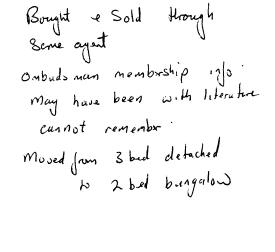 Bought & Sold through
same agent
Ombudsman membrship info.
may have been with literature
cannot remembr.
Moved from 3 bed detached
to 2 bed bungalow